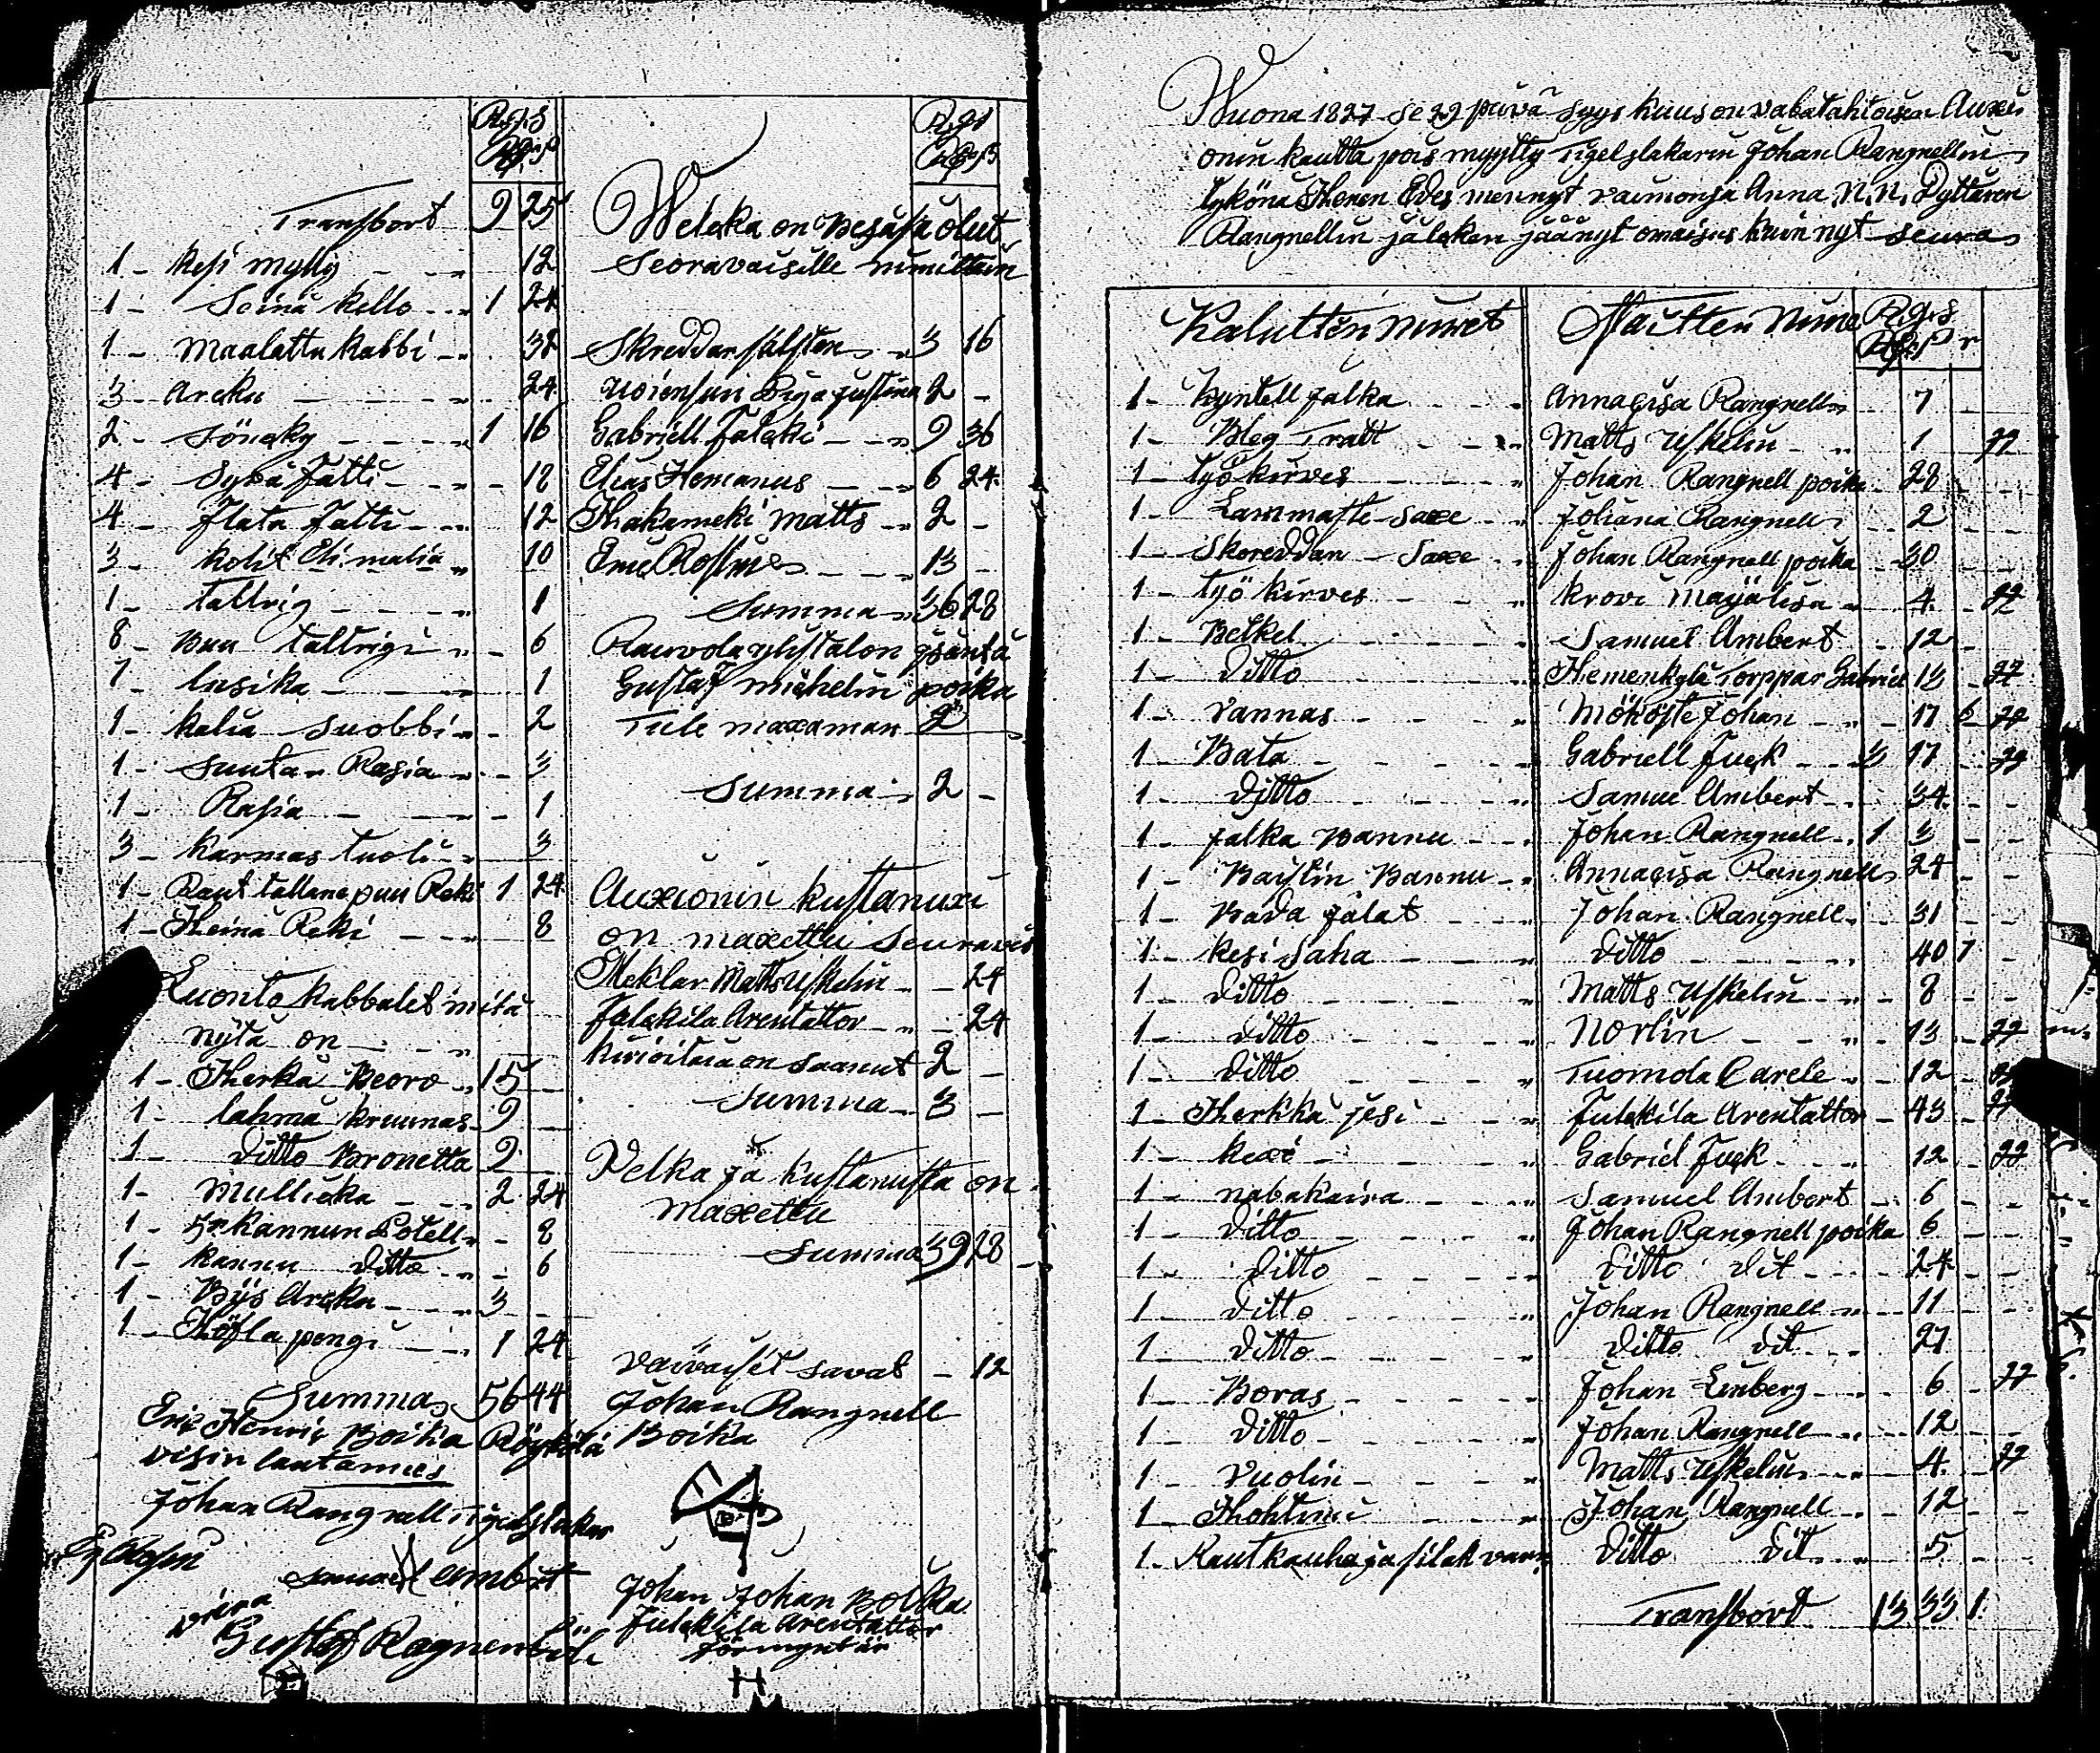 Rgs
Transport 9 25
1 - kesi mylly - - 12
1 - Seinä kello - - 1 24
1 - Maalattu kabbi - - 32
3 - Arcku - - - 24
2 - Söncky - - - 1 16
4 - Sywä Fatti - - - 12
4 - Flata Fatti - - 12
3 - kolit Eli malia 10
1 - tallrig - - - 1
8 - wuu tallrigi - - 6
7 - lusika - - - 1
1 - kalia suobbi - - 2
1 - Suutar Rasia - - 3
1 - Rasia - - - 1
3 - karmas tuoli - - 3
1 - Raut tallane puu Reki 1 24
1 - Heinä Reki - - - 8
Luonto kabbalet mitä
nytä on - - -
1 - Herkä Beoro - 15 -
1 - lahmä kruunas - 9 -
1 - ditto Bronetta 9 -
1 - Mullicka - - 2 24
1 - 5n kannun Potell - - 8
1 - kannu ditto - - 6
1 - Bys Arcku - - - 3 -
1 - Höfla pengi - - 1 24
Summa 56 44
Eric Henric Boika Röykilä
visin lautamies
Johan Rangnell Tigelslakar
Samuel Ambert
Gustaf
Rgs
Welcka on Besästä ölut
Seoravaisille nimittein
Skreddar sälsten - 3 16
Piga justina 2 -
Gabriell Falcki - - 9 36
Elias Hemanus - - 6 24
Hakameki Matts - 2 -
- - - 13 -
Summa - 36 28
isäntä
Gustaf Michelin poika
Tule maxaman 2
Summa - 2 -
Auxionin kustanuxi
on maxettu Seuravis
Meklar Matts Uskelin - - 24
Falckila Arentattor - - 24
kirioitaia on saanut 2 -
Summa - 3 -
Velka ja kustanusta on
Maxettu
Summa 39 28
Vaivaiset savat - 12
Johan Rangnell
Boika
Johan Johan Boika
Julckila Arentattor
förmyntär
Wuona 1827 se 29 päivä Syys kuus on vabatahtoisen Auxi
onin kautta pois myytty Tigelslakarin Johan Rangnellin
tykönä Henen Edes mennyt vaimonsa Anna N.N. Dyttären
Rangnellin jälcken jäänyt omaisus kuin nyt seura
Kalutten nimet Maitten Nime Rgs
1 - kyntell jalka - - Anna Lisa Rangnell 7 -
1 - Bleg Tratt - - - Matts Uskelin - - 1 - 22
1 - työ kirves - - - Johan Rangnell poika - 28 - -
1 - Lammaste Saxe - - Johana Rangnell - 2 - -
1 - Skreddan - Saxe - Johan Rangnell poika - 30 - -
1 - Työ kirves - - - krovi Mayälisa - 4 - 22
1 - Betkel - - - - Samuel Ambert - 12 -
1 - Ditto - - - - Hiemenkylä Torppar Gabriel 13 - 22
1 - Vannas - - - - Mököste Johan - - 17 6 22
1 - Bata - - - - Gabriell Juck - - 3 17 - 22
1 - Ditto - - - - Samue Ambert - - 34 - -
1 - jalka Bannu - - - Johan Rangnell - 1 3 - -
1 - Baistin Bannu - - Anna Lisa Rangnell 24 - -
1 - Bada jalat - - - Johan Rangnell - 31 - -
1 - kesi Saha - - - ditto - - - - 40 1 -
1 - Ditto - - - - Matts Uskelin - - 8 - -
1 - ditto - - - - Norlin - - - 13 - 22
1 - Ditto - - - - Tuomola Carele - - 12 - 22
1 - Herkkä jesi - - - Julckila Arentattor - 43 - 22
1 - kexi - - - - Gabriel Juck - - - 12 - 22
1 - nabakaira - - - Samuel Ambert - - 6 - -
1 - ditto - - - - Johan Rangnell poika 6 - -
1 - ditto - - - - ditto dit - - - 24 - -
1 - ditto - - - - Johan Rangnell - - 11 - -
1 - ditto - - - - ditto dit - - - 27
1 - Boras - - - - Johan Lenberg - - 6 - 22
1 - ditto - - - - Johan Rangnell - - 12 - -
1 - Vuolin - - - - Matts Uskelin - - 4 - 22
1 - Hohtimi - - - Johan Rangnell - - 12 - -
1 - Rautkauha ja silak vars Ditto dit - - 5 - -
Transbort 13 33 1